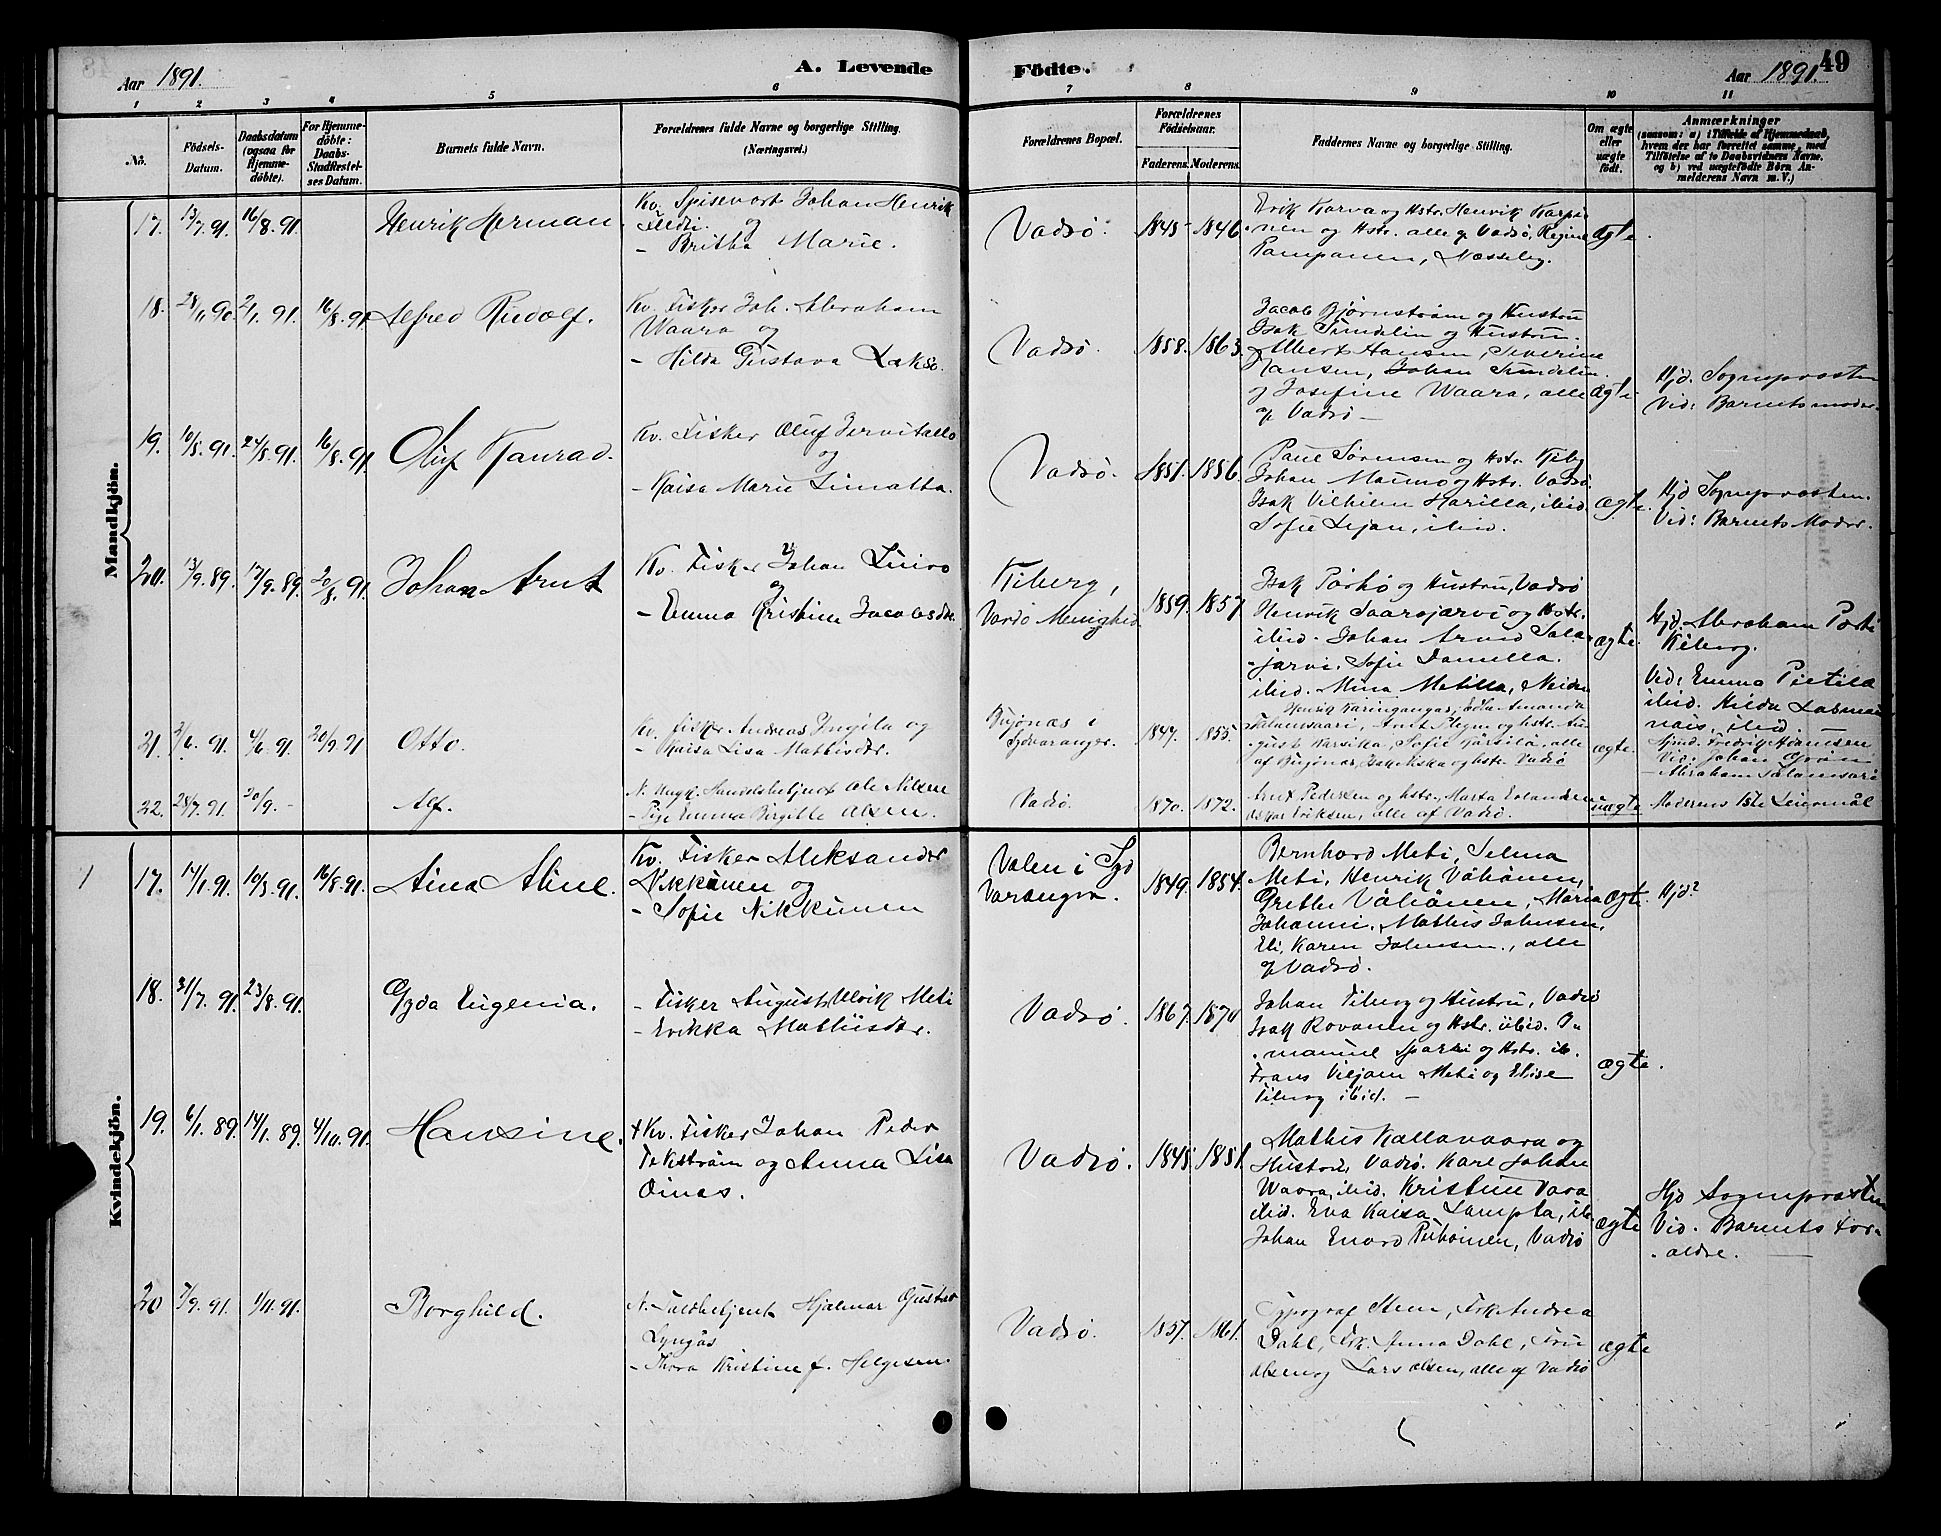 Aar 1891.
A. Levende
Födte.
Aar 1891.
49
1 2 3 4 5 6 7 8 9 10 11
No.
Födsels-
Datum.
Daabsdatum
(ogsaa for
Hjemme-
döbte).
For Hjemme-
döbte:
Daabs-
Stadfæstel-
ses Datum.
Barnets fulde Navn.
Forældrenes fulde Navne og borgerlige Stilling.
(Næringsvei.)
Forældrenes Bopæl.
Forældrenes
Födselsaar.
Faderens. Moderens.
Faddernes Navne og borgerlige Stilling.
Om ægte
eller
uægte
födt.
Anmærkninger
(saasom: a) i Tilfælde af Hjemmedaab,
hvem der har forrettet samme, med
Tilföielse af to Daabsvidners Navne,
og b) ved uægtefödte Börn An-
melderens Navn m. V.)
Mandkjön.
17. 13/7.91. 16/8.91. Henrik Herman
Kv. Spisevært Johan Henrik
og
- Britha Marie.
Vadsø. 1845 1846.
Erik Karva og Hstr. Henrik Karpi
nen og Hstr. alle af Vadsø, Regine
Pampanen, Næsseby.
ægte.
18. 28/11 90. 2/1. 91. 16/8.91. Alfred Rudolf.
Kv. Fisker Joh. Abraham
Waara og
- Hilda Gustava Lakso.
Vadsø. 1858. 1863.
Jacob Bjørnstrøm og Hustru
Isak Sundelin og Hustru.
Albert Hansen, Severine
Hansen, Johan Sundelin.
og Josefine Waara, alle
af Vadsø —
ægte.
Hjd. Sognepræsten
Vid: Barnets moder.
19. 10/5.91. 24/5.91. 16/8.91. Oluf Konrad.
Kv. Fisker Oluf Jervitallo
og
- Kaisa Marie Limatta.
Vadsø. 1851. 1856.
Paul Sørensen og Hstr. Kjeby
Johan Mauno og Hstr. Vadsø.
Isak Vilhelm Harilla, ibid.
Sofie Lejan, ibid.
ægte.
Hjd Sognepræsten.
Vid: Barnets Moder.
20. 13/9.89. 17/9.89. 20/8.91. Johan Arnt
Kv. Fisker Johan Luiro
og
- Emma Kristine Jacobsdtr.
Kiberg,
Vardø Menighed 1859. 1857
Isak Pørhø og Hustru, Vadsø
Henrik Saarejarvi og Hstr.
ibid. Johan Arvid Sala-
jarvi. Sofie Daniella.
ibid. Mina Metilla, Neiden
ægte.
Hjd. Abraham Porti
Kiberg.
Vid: Emma Pietilä
ibid. Hilda Lasma
nais, ibid. —
21. 2/6. 91. 4/6.91. 20/9.91 Otto.
Kv. Fisker Andreas Ingila og
- Kaisa Lisa Mathisdtr.
Bugønæs i
Sydvaranger. 1847. 1855.
Henrik Karingangas, Edla Amanda
Salamsaari, Arnt Plegm og hstr. Au-
gust Karsika, Sofie Karsila, alle
af Bugønæs, Isak Niska og hstr. Vadsø
ægte.
Hjmd. Fredrik Hansen
Vid: Johan
Abraham Salamsari
22. 28/7.91. 20/9.- Alf.
N. Ungk. Handelsbetjent Ole Nilsen
- Pige Emma Birgitte Olsen.
Vadsø. 1870. 1872.
Arnt Pedersen og hstr., Marta Erlandsen
Oskar Eriksen, alle af Vadsø.
uægte
Moderens 1ste Leiermål
Kvindekjön.
1
17. 14/1.91. 10/3.91. 16/8.91. Aina Aline.
Kv. Fisker Aleksander
Nikkinen og
- Sofie Nikkinen
Valen i Syd
Varanger. 1849. 1854.
Bernhard Meti, Selma
Meti, Henrik Vähänen,
Grethe Vähänen, Maria
Johanni. Mathis Johnsen,
Eli, Karen Johnsen., alle
af Vadsø.
ægte. Hjd?
18. 31/7.91. 23/8.91. Gyda Eugenia.
- Fisker August Ulrik Meti
- Erikka Mathisdtr.
Vadsø. 1867. 1870
Johan Tiberg og Hustru, Vadsø
Isak Rovanen og Hstr. ibid. I-
manuel Sparri og Hstr. ib.
Frans Viljam Meti og Elise
Tiberg ibid. —
ægte.
19. 6/1. 89. 14/1. 89. 4/10.91. Hansine.
+Kv. Fisker Johan Peder
Tekstrøm og Anna Lisa
Oinas.
Vadsø. 1845 1851.
Mathis Kallavaara og
Hustru, Vadsø. Karl Johan
Waara, ibid. Kristine Vara
ibid. Eva Kaisa Lampta, ib.
Johan Enard Pithoinen, Vadsø
ægte
Hjd Sognepræsten
Vid. Barnets For-
ældre. —
20 7/9.91. 1/11.91. Borghild.
N. Toldbetjent Hjalmar Gustav
Lyngås
- Thora Kristine f. Helgesen.
Vadsø. 1857. 1861.
Typograf Stene, Frk. Andrea
Dahl, Frk. Anna Dahl, Fru
Olsen og Lars Olsen, alle af Vadsø
ægte